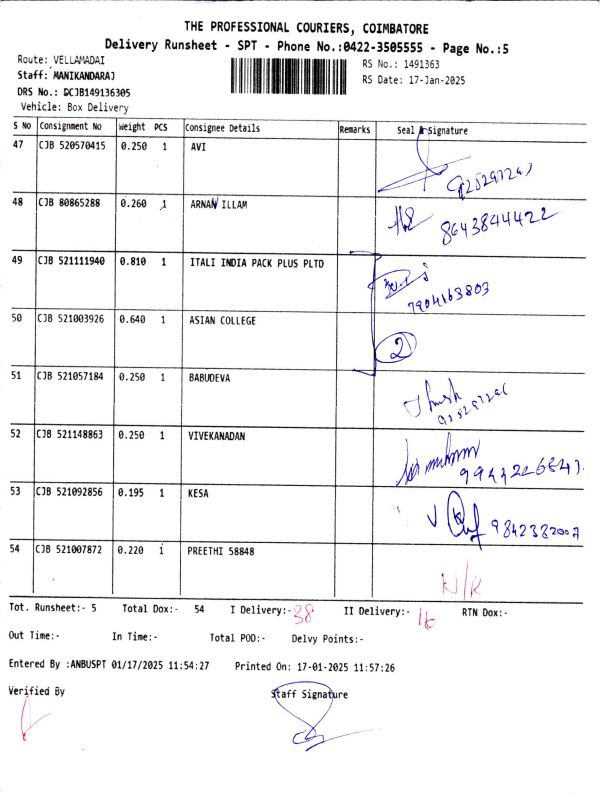 THE PROFESSIONAL COURIERS, COIMBATORE
Delivery Runsheet - SPT - Phone No.:0422-3505555 - Page No.:5
Route: VELLAMADAI
RS No.: 1491363
Staff: MANIKANDARAJ
RS Date: 17-Jan-2025
DRS No.: DCJB149136305
Vehicle: Box Delivery
S No Consignment No Weight PCS Consignee Details Remarks Seal & Signature
47 CJB 520570415 0.250 1 AVI
48 CJB 80865288 0.260 1 ARNAV ILLAM
8643844422
49 CJB 521111940 0.810 1 ITALI INDIA PACK PLUS PLTD
7904163803
50 CJB 521003926 0.640 1 ASIAN COLLEGE
2
51 CJB 521057184 0.250 1 BABUDEVA
52 CJB 521148863 0.250 1 VIVEKANADAN
53 CJB 521092856 0.195 1 KESA
9842382007
54 CJB 521007872 0.220 1 PREETHI 58848
N/R
Tot. Runsheet:- 5 Total Dox:- 54 I Delivery:- 38 II Delivery:- 16 RTN Dox:-
Out Time:- In Time:- Total POD:- Delvy Points:-
Entered By :ANBUSPT 01/17/2025 11:54:27 Printed On: 17-01-2025 11:57:26
Verified By Staff Signature